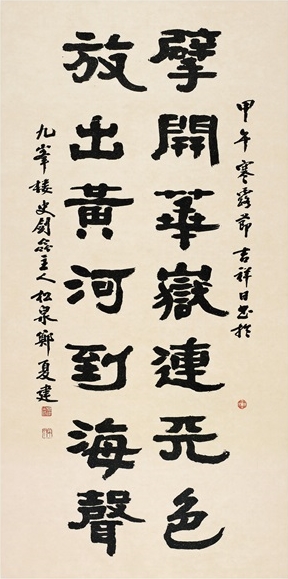 甲午寒露節吉祥日書於
擘開華嶽連天色
放出黃河到海聲
九峯樓史劍主人松泉鄭夏建